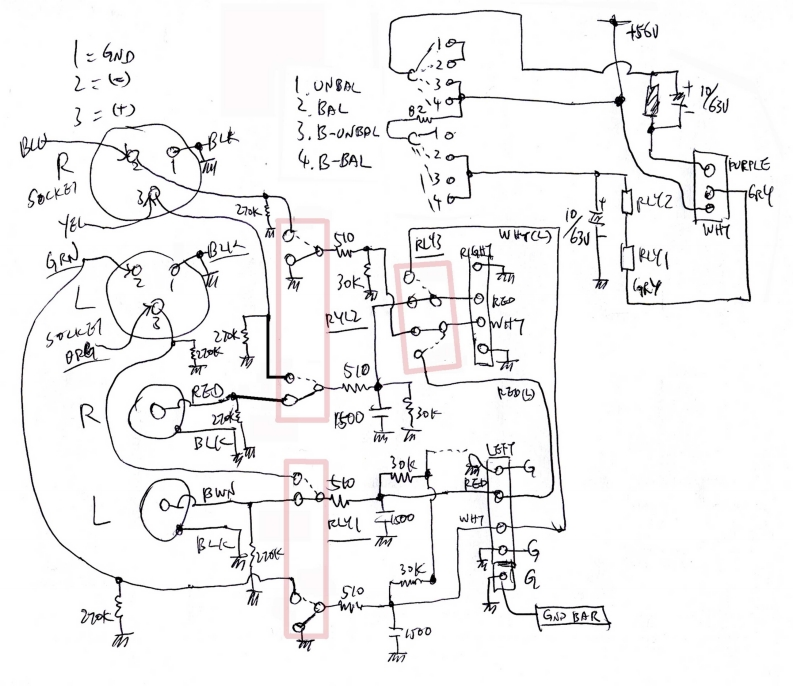 1 = GND
2 = (-)
3 = (+)
1. UNBAL
2. BAL
3. B-UNBAL
4. B-BAL
1
2
3
4
82
1
2
3
4
+56V
+
-
10/63V
PURPLE
GRY
WHT
10/63V
+
-
RLY2
RLY1
GRY
BLU
R
SOCKET
2
1
BLK
3
YEL
270K
GRN
L
SOCKET
2
1
BLK
3
ORG
270K
270K
510
30K
RLY2
RLY3
WHT(L)
RIGHT
RED
WHT
RED(L)
510
1500
30K
R
RED
270K
BLK
L
BWN
BLK
270K
510
RLY1
1500
30K
30K
LEFT
G
RED
WHT
G
G
GND BAR
270K
510
1500